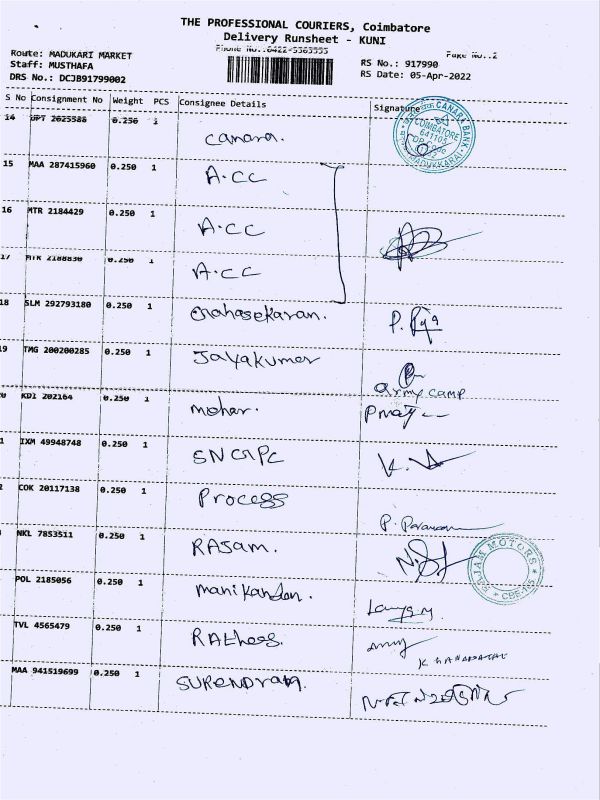 THE PROFESSIONAL COURIERS, Coimbatore
Delivery Runsheet - KUNI
Phone No.:0422-5363555
Page No.:2
Route: MADUKARI MARKET
RS No.: 917990
Staff: MUSTHAFA
RS Date: 05-Apr-2022
DRS No.: DCJB91799002
S No Consignment No Weight PCS Consignee Details Signature
14 UPT 2625588 0.250 1 Canara.
CANARA BANK COIMBATORE 641105 MADUKKARAI
15 MAA 287415960 0.250 1 A.CC
16 MTR 2184429 0.250 1 A.CC
17 MTR 2188830 0.250 1 A.CC
18 SLM 292793180 0.250 1 P. Raja
19 TMG 200200285 0.250 1 Jayakumar
army camp
0 KDI 202164 0.250 1 mohar.
1 IXM 49948748 0.250 1 SNGIPC
2 COK 20117138 0.250 1 Process
NKL 7853511 0.250 1 RAJam.
RAJAM MOTORS
POL 2185056 0.250 1 manikandan.
TVL 4565479 0.250 1
MAA 941519699 0.250 1 SURENDram.